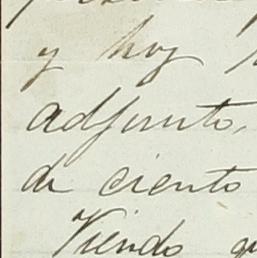 y hoy
adjunto,
de ciento
Viendo